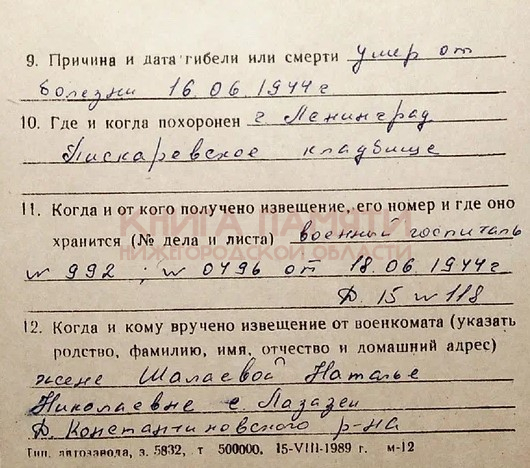 9. Причина и дата гибели или смерти умер от
болезни 16.06.1944 г
10. Где и когда похоронен г. Ленинград
Пискаревское кладбище
11. Когда и от кого получено извещение, его номер и где оно
хранится (№ дела и листа) военный госпиталь
КНИГА ПАМЯТИ
НИЖЕГОРОДСКОЙ ОБЛАСТИ
N 992 ; N 0496 от 18.06.1944 г
Д. 15 N 118
12. Когда и кому вручено извещение от военкомата (указать
родство, фамилию, имя, отчество и домашний адрес)
жене Шалаевой Наталье
Николаевне с. Лазазеи
Д. Константиновского р-на
Тип. автозавода, з. 5832, т 500000. 15-VIII-1989 г. м-12